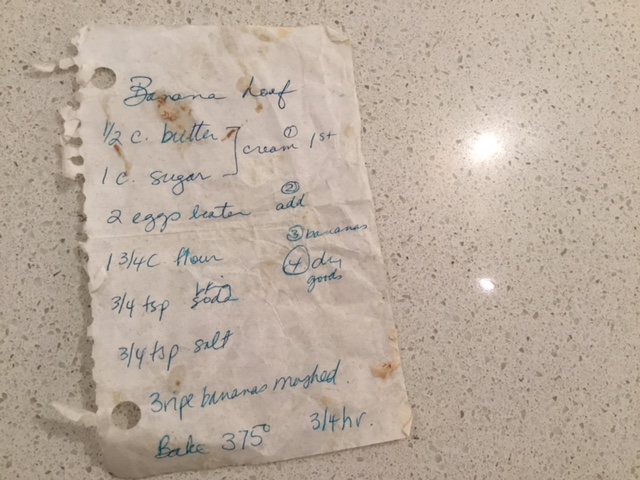 Banana Loaf
1/2 c. butter ① cream 1st
1 c. sugar
2 eggs beaten ② add
1 3/4 c flour ③ bananas
④ dry goods
3/4 tsp bk. soda
3/4 tsp salt
3 ripe bananas mashed
Bake 375° 3/4 hr.